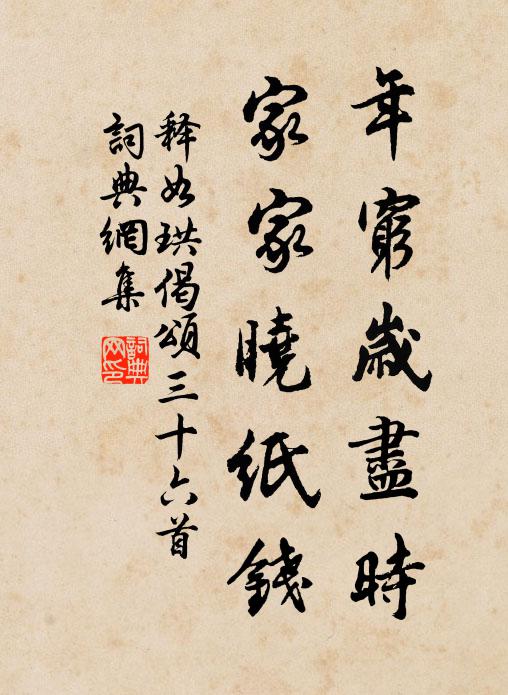 年窮歲盡時
家家曉紙錢
释如珙偈頌三十六首
詞典網集
詞典网印